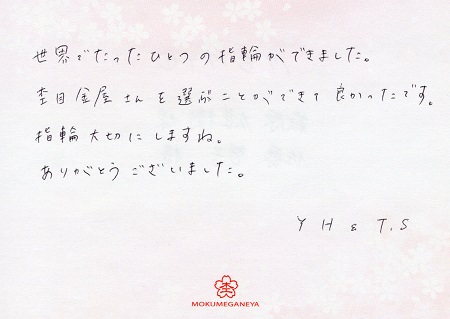 世界でたったひとつの指輪ができました。
杢目金屋さんを選ぶことができて良かったです。
指輪大切にしますね。
ありがとうございました。
Y H & T.S
杢
MOKUMEGANEYA